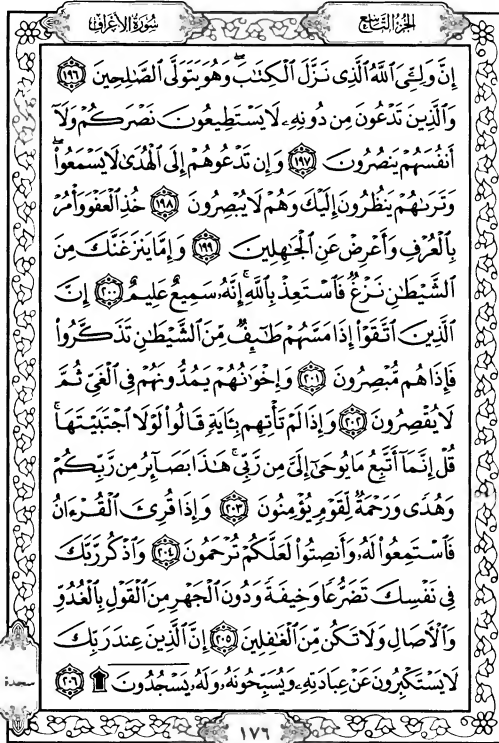 سُورَةُ الأَعْرَافِ
الجُزْءُ التَّاسِعُ
إِنَّ وَلِـِّۧيَ ٱللَّهُ ٱلَّذِى نَزَّلَ ٱلْكِتَٰبَۖ وَهُوَ يَتَوَلَّى ٱلصَّٰلِحِينَ ١٩٦
وَٱلَّذِينَ تَدْعُونَ مِن دُونِهِۦ لَا يَسْتَطِيعُونَ نَصْرَكُمْ وَلَآ
أَنفُسَهُمْ يَنصُرُونَ ١٩٧ وَإِن تَدْعُوهُمْ إِلَى ٱلْهُدَىٰ لَا يَسْمَعُوا۟ۖ
وَتَرَىٰهُمْ يَنظُرُونَ إِلَيْكَ وَهُمْ لَا يُبْصِرُونَ ١٩٨ خُذِ ٱلْعَفْوَ وَأْمُرْ
بِٱلْعُرْفِ وَأَعْرِضْ عَنِ ٱلْجَٰهِلِينَ ١٩٩ وَإِمَّا يَنزَغَنَّكَ مِنَ
ٱلشَّيْطَٰنِ نَزْغٌ فَٱسْتَعِذْ بِٱللَّهِۚ إِنَّهُۥ سَمِيعٌ عَلِيمٌ ٢٠٠ إِنَّ
ٱلَّذِينَ ٱتَّقَوْا۟ إِذَا مَسَّهُمْ طَٰٓئِفٌ مِّنَ ٱلشَّيْطَٰنِ تَذَكَّرُوا۟
فَإِذَا هُم مُّبْصِرُونَ ٢٠١ وَإِخْوَٰنُهُمْ يَمُدُّونَهُمْ فِى ٱلْغَىِّ ثُمَّ
لَا يُقْصِرُونَ ٢٠٢ وَإِذَا لَمْ تَأْتِهِم بِـَٔايَةٍ قَالُوا۟ لَوْلَا ٱجْتَبَيْتَهَاۚ
قُلْ إِنَّمَآ أَتَّبِعُ مَا يُوحَىٰٓ إِلَىَّ مِن رَّبِّىۚ هَٰذَا بَصَآئِرُ مِن رَّبِّكُمْ
وَهُدًى وَرَحْمَةٌ لِّقَوْمٍ يُؤْمِنُونَ ٢٠٣ وَإِذَا قُرِئَ ٱلْقُرْءَانُ
فَٱسْتَمِعُوا۟ لَهُۥ وَأَنصِتُوا۟ لَعَلَّكُمْ تُرْحَمُونَ ٢٠٤ وَٱذْكُر رَّبَّكَ
فِى نَفْسِكَ تَضَرُّعًا وَخِيفَةً وَدُونَ ٱلْجَهْرِ مِنَ ٱلْقَوْلِ بِٱلْغُدُوِّ
وَٱلْءَاصَالِ وَلَا تَكُن مِّنَ ٱلْغَٰفِلِينَ ٢٠٥ إِنَّ ٱلَّذِينَ عِندَ رَبِّكَ
لَا يَسْتَكْبِرُونَ عَنْ عِبَادَتِهِۦ وَيُسَبِّحُونَهُۥ وَلَهُۥ يَسْجُدُونَ ۩ ٢٠٦
سجدة
١٧٦